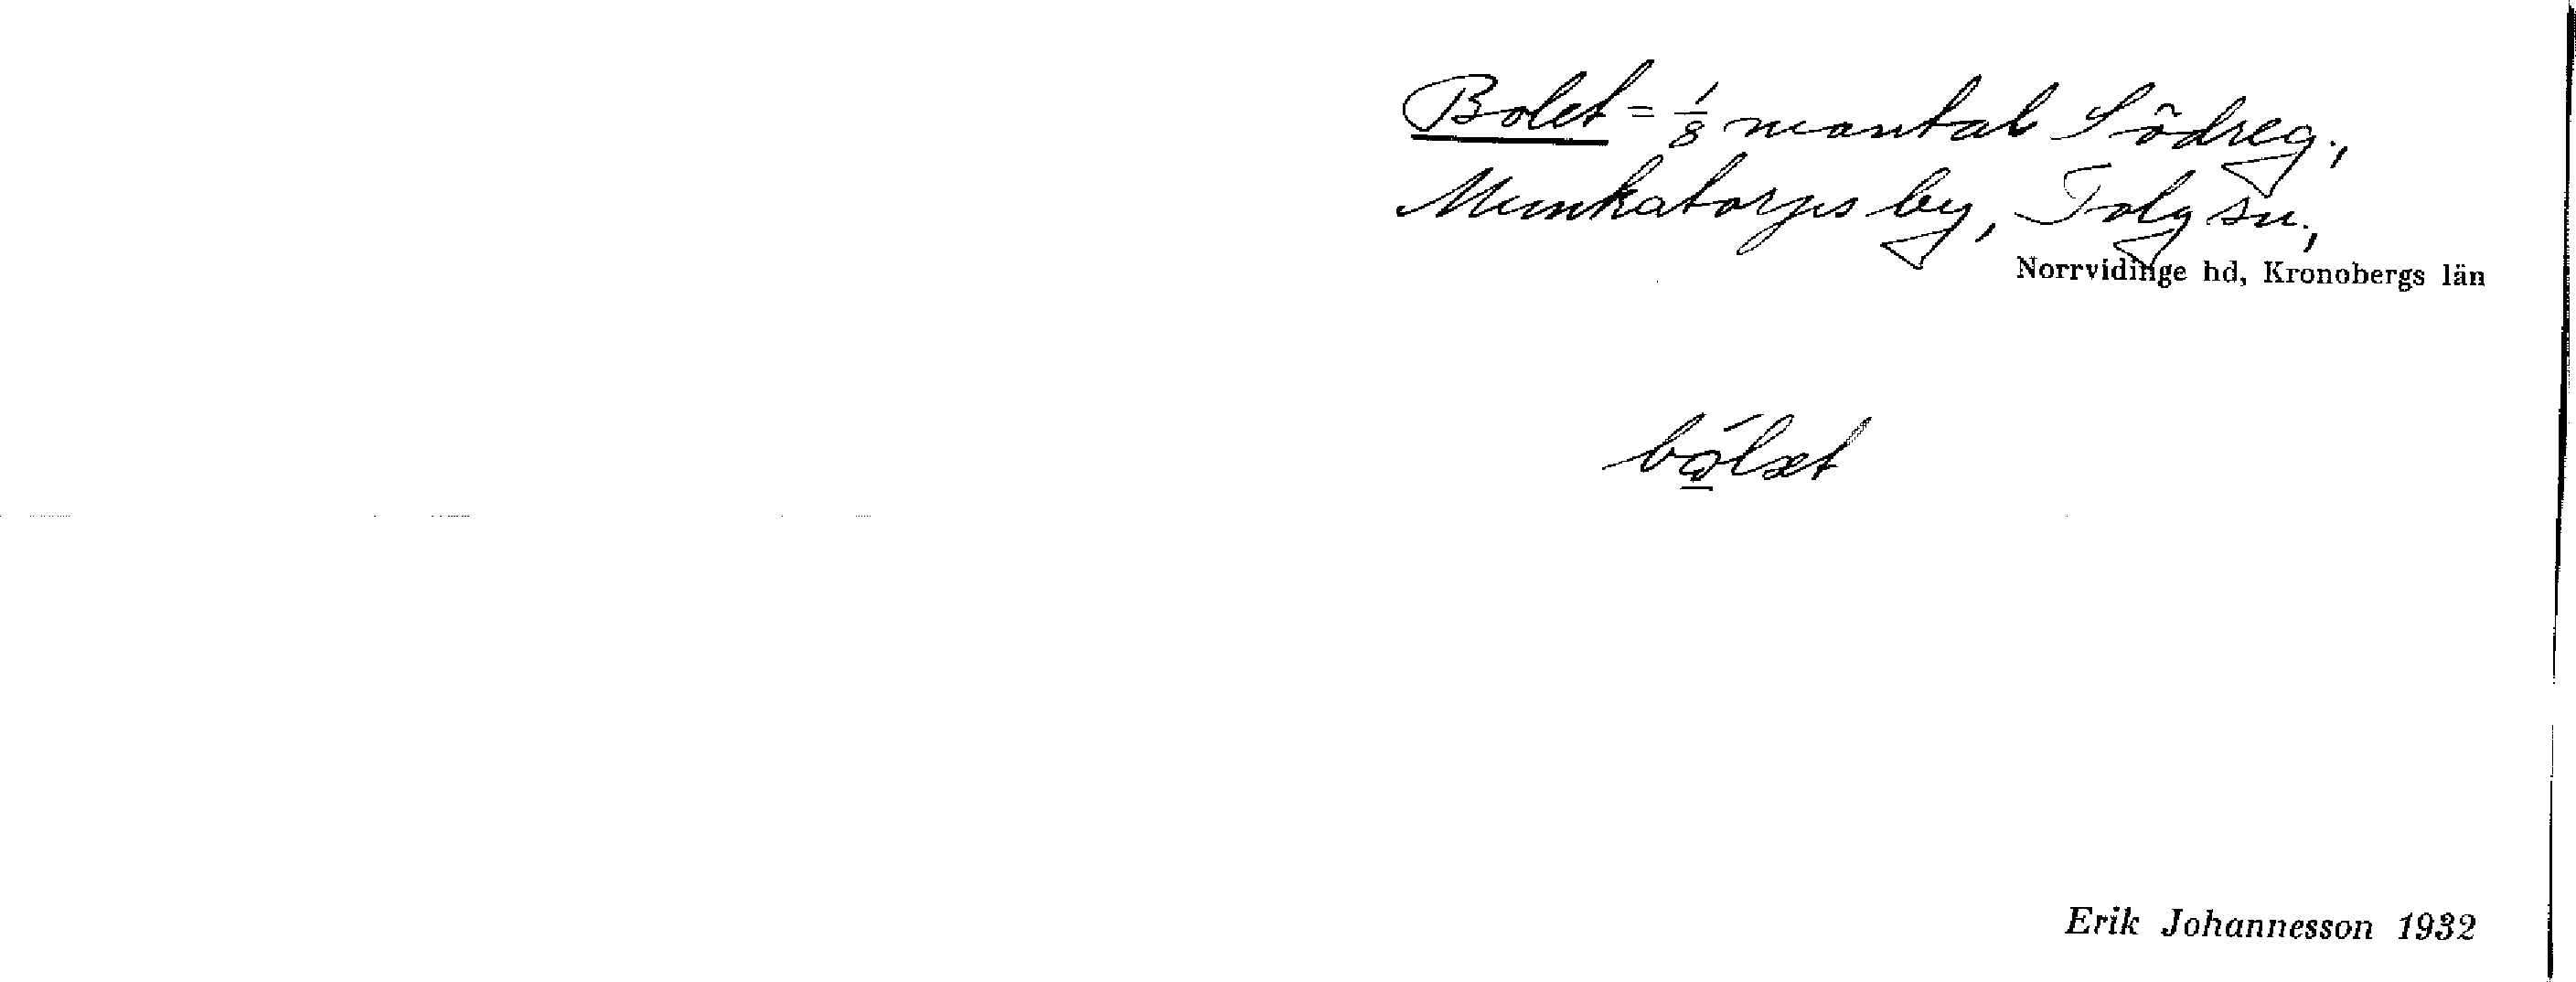 Bolet = 1/8 mantal Södreg.,
Munkatorps by, Tolg sn.,
Norrvidinge hd, Kronobergs län
bó̲læt
Erik Johannesson 1932